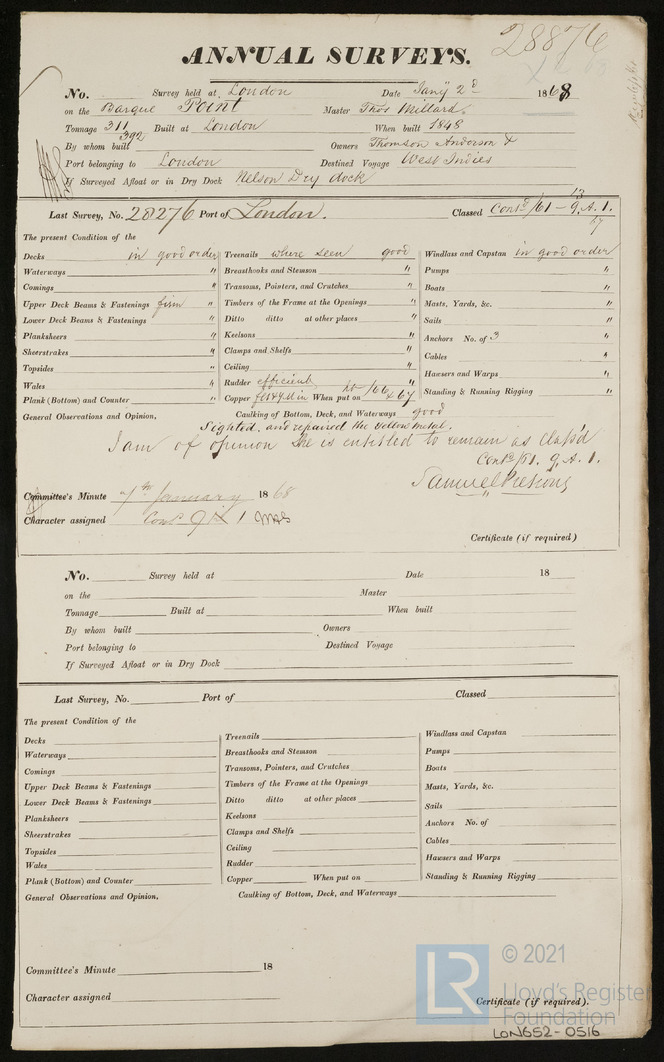 28876
ANNUAL SURVEYS.
No. Survey held at London Date Jany 2d 1868
on the Barque Point Master Thos Millard.
Tonnage 311 392 Built at London When built 1848
By whom built Owners Thomson Anderson &
Port belonging to London Destined Voyage West Indies
If Surveyed Afloat or in Dry Dock Nelson Dry dock
Last Survey, No. 28276 Port of London. Classed Contd/61 - 9. A. 1.
The present Condition of the
Decks in good order
Waterways "
Comings "
Upper Deck Beams & Fastenings firm "
Lower Deck Beams & Fastenings "
Planksheers "
Sheerstrakes "
Topsides "
Wales "
Plank (Bottom) and Counter "
Treenails where seen good
Breasthooks and Stemson "
Transoms, Pointers, and Crutches "
Timbers of the Frame at the Openings "
Ditto ditto at other places "
Keelsons "
Clamps and Shelfs "
Ceiling "
Rudder efficient "
Copper When put on /66 & 67
Windlass and Capstan in good order
Pumps "
Boats "
Masts, Yards, &c. "
Sails "
Anchors No. of 3 "
Cables "
Hawsers and Warps "
Standing & Running Rigging "
General Observations and Opinion. Caulking of Bottom, Deck, and Waterways good
Sighted, and repaired the Yellow metal.
I am of opinion She is entitled to remain as Class'd
Contd/61. 9. A. 1.
Samuel
Committee's Minute 7th January 1868
Character assigned Contd 9 A 1
Certificate (if required)
No. Survey held at Date 18
on the Master
Tonnage Built at When built
By whom built Owners
Port belonging to Destined Voyage
If Surveyed Afloat or in Dry Dock
Last Survey, No. Port of Classed
The present Condition of the
Decks
Waterways
Comings
Upper Deck Beams & Fastenings
Lower Deck Beams & Fastenings
Planksheers
Sheerstrakes
Topsides
Wales
Plank (Bottom) and Counter
Treenails
Breasthooks and Stemson
Transoms, Pointers, and Crutches
Timbers of the Frame at the Openings
Ditto ditto at other places
Keelsons
Clamps and Shelfs
Ceiling
Rudder
Copper When put on
Windlass and Capstan
Pumps
Boats
Masts, Yards, &c.
Sails
Anchors No. of
Cables
Hawsers and Warps
Standing & Running Rigging
General Observations and Opinion. Caulking of Bottom, Deck, and Waterways
Committee's Minute 18
Character assigned
Certificate (if required).
LR © 2021
Lloyd's Register
Foundation
LON652-0516